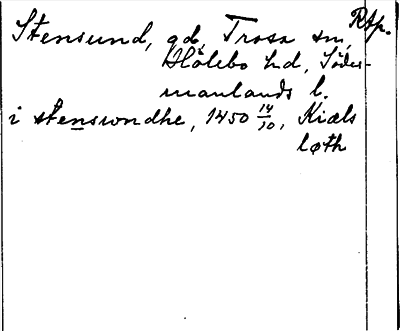 Stensund, gd, Trosa sn, Rtp.
Hölebo hd, Söder-
manlands l.
i stenswndhe, 1450 14/10, Kiæls
løth